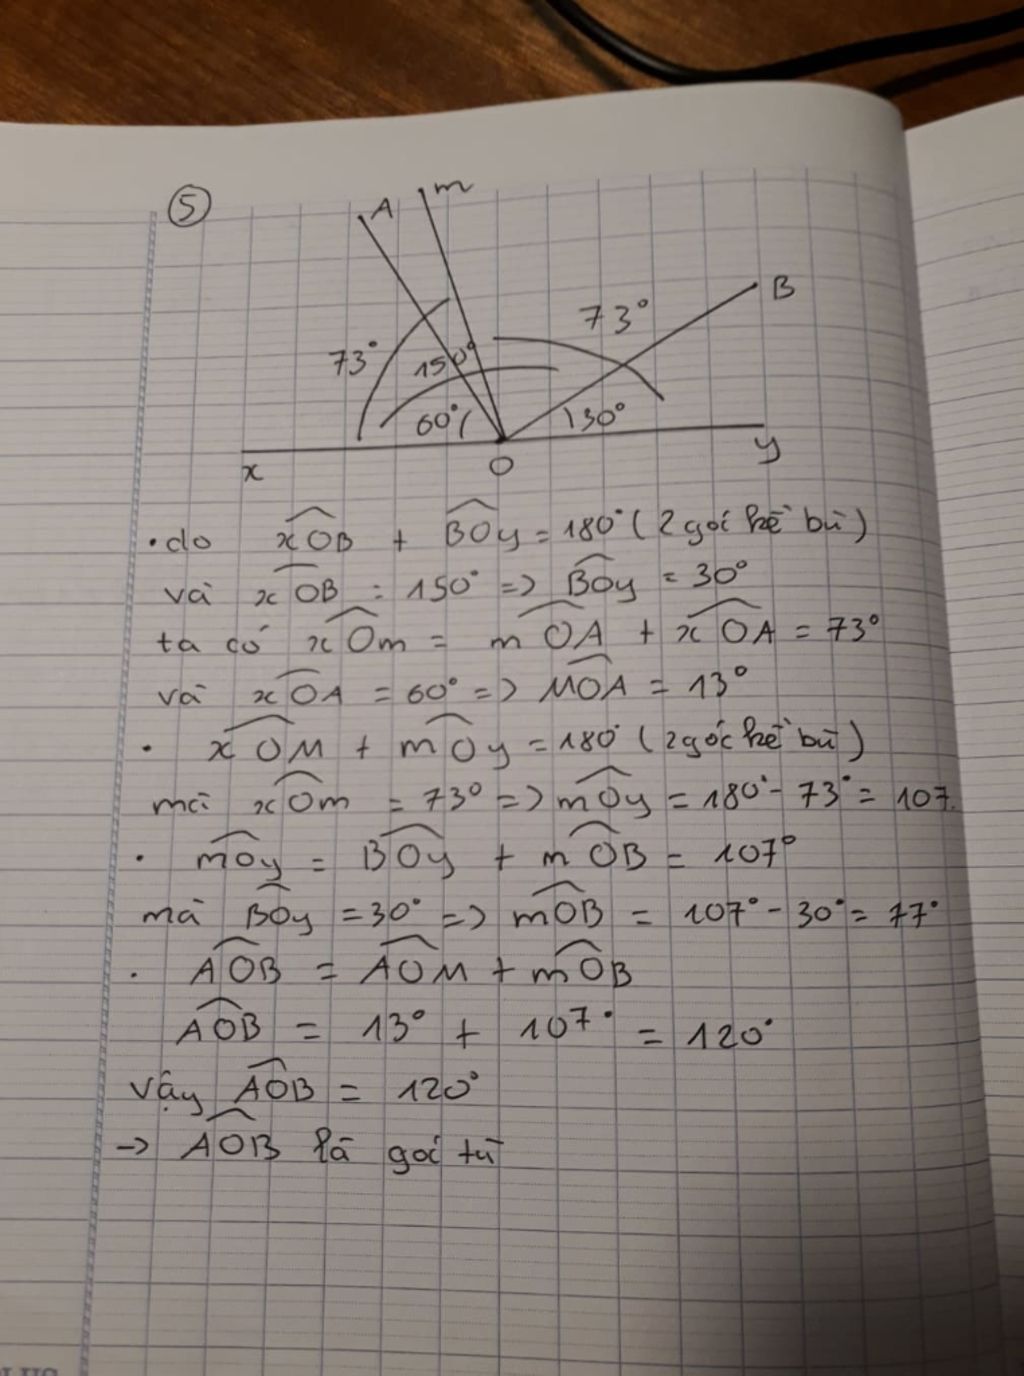 5
A m
B
73°
73°
150°
60°
30°
x O y
• do xOB + BOy = 180° (2 góc kề bù)
và xOB = 150° => BOy = 30°
ta có xOm = mOA + xOA = 73°
và xOA = 60° => MOA = 13°
• xOM + mOy = 180° (2 góc kề bù)
mà xOm = 73° => mOy = 180° - 73° = 107
• mOy = BOy + mOB = 107°
mà BOy = 30° => mOB = 107° - 30° = 77°
• AOB = AOM + mOB
AOB = 13° + 107° = 120°
vậy AOB = 120°
-> AOB là góc tù